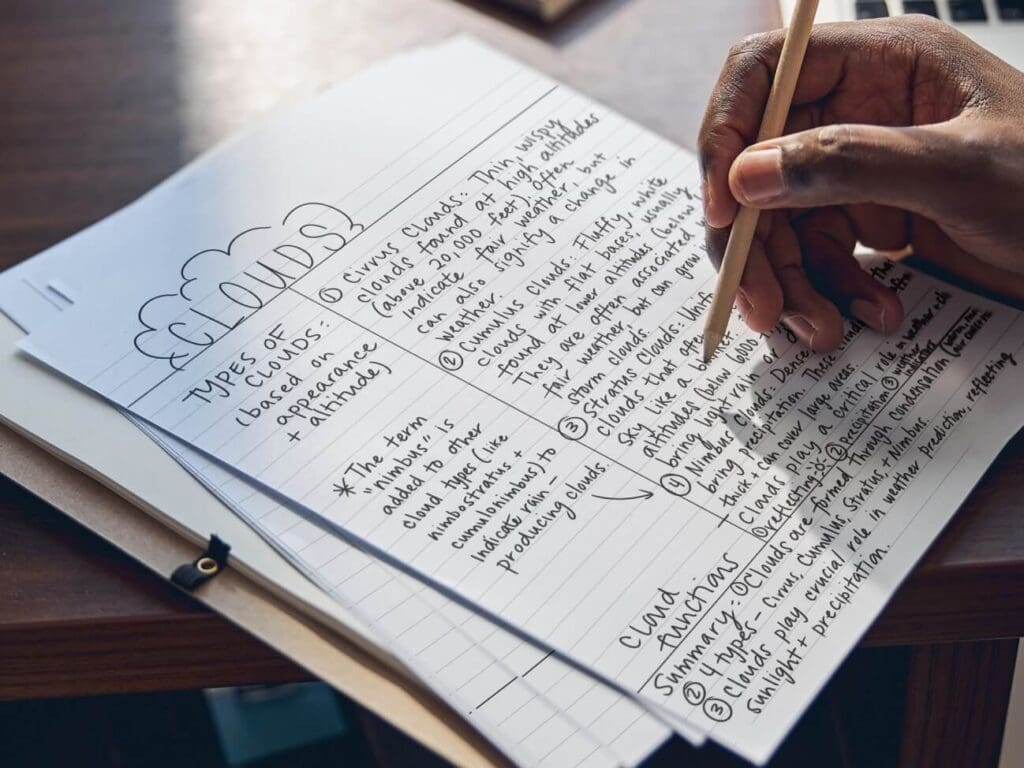 CLOUDS
TYPES OF
CLOUDS:
(based on
appearance
+ altitude)
*The term
"nimbus" is
added to other
cloud types (like
nimbostratus +
cumulonimbus) to
indicate rain-
producing clouds.
① Cirrus Clouds: Thin, wispy
clouds found at high altitudes
(above 20,000 feet), often
indicate fair weather, but
can also signify a change in
weather.
② Cumulus Clouds: Fluffy, white
clouds with flat bases; usually
found at lower altitudes (below
They are often associated
fair weather but can grow
storm clouds.
③ Stratus Clouds:
clouds that
sky like a
altitudes (below 6,000
bring light rain or
① Nimbus Clouds: Dense
bring precipitation. These
think can cover large areas.
Cloud
functions
Clouds play a critical role in weather
① reflecting ② precipitation ③
Summary: ① Clouds are formed through condensation
② 4 types - Cirrus, Cumulus, Stratus + Nimbus
③ Clouds play crucial role in weather prediction, reflecting
sunlight + precipitation.